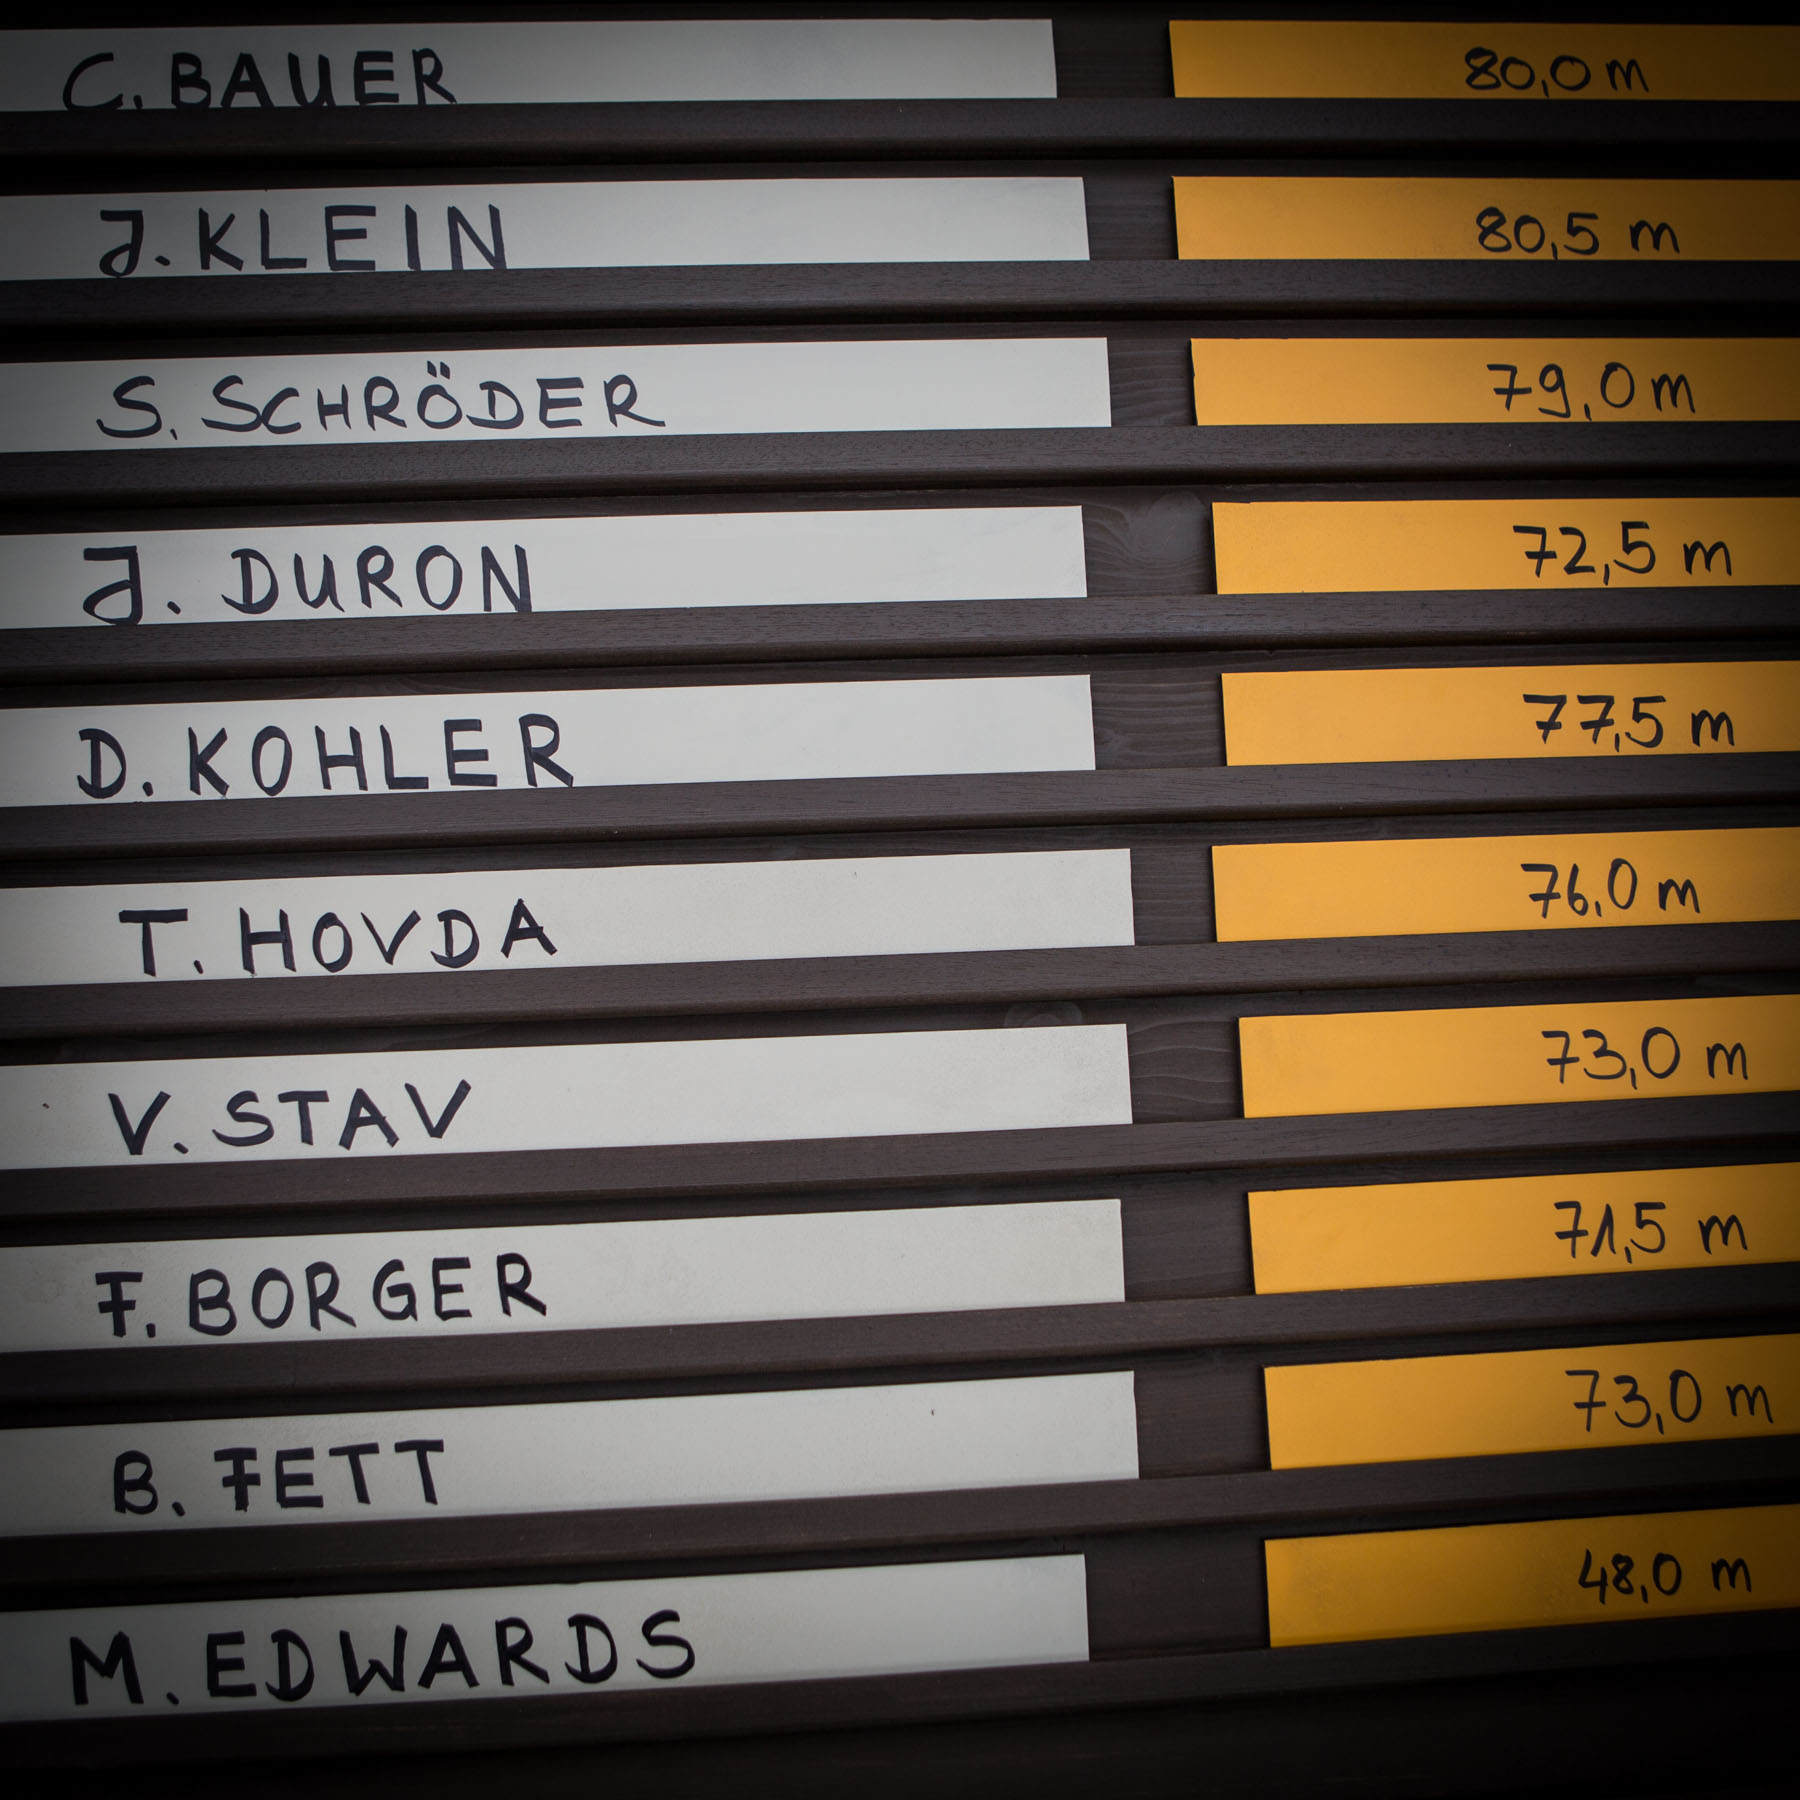 C. BAUER 80,0 m
J. KLEIN 80,5 m
S. SCHRÖDER 79,0 m
J. DURON 72,5 m
D. KOHLER 77,5 m
T. HOVDA 76,0 m
V. STAV 73,0 m
F. BORGER 71,5 m
B. FETT 73,0 m
M. EDWARDS 48,0 m